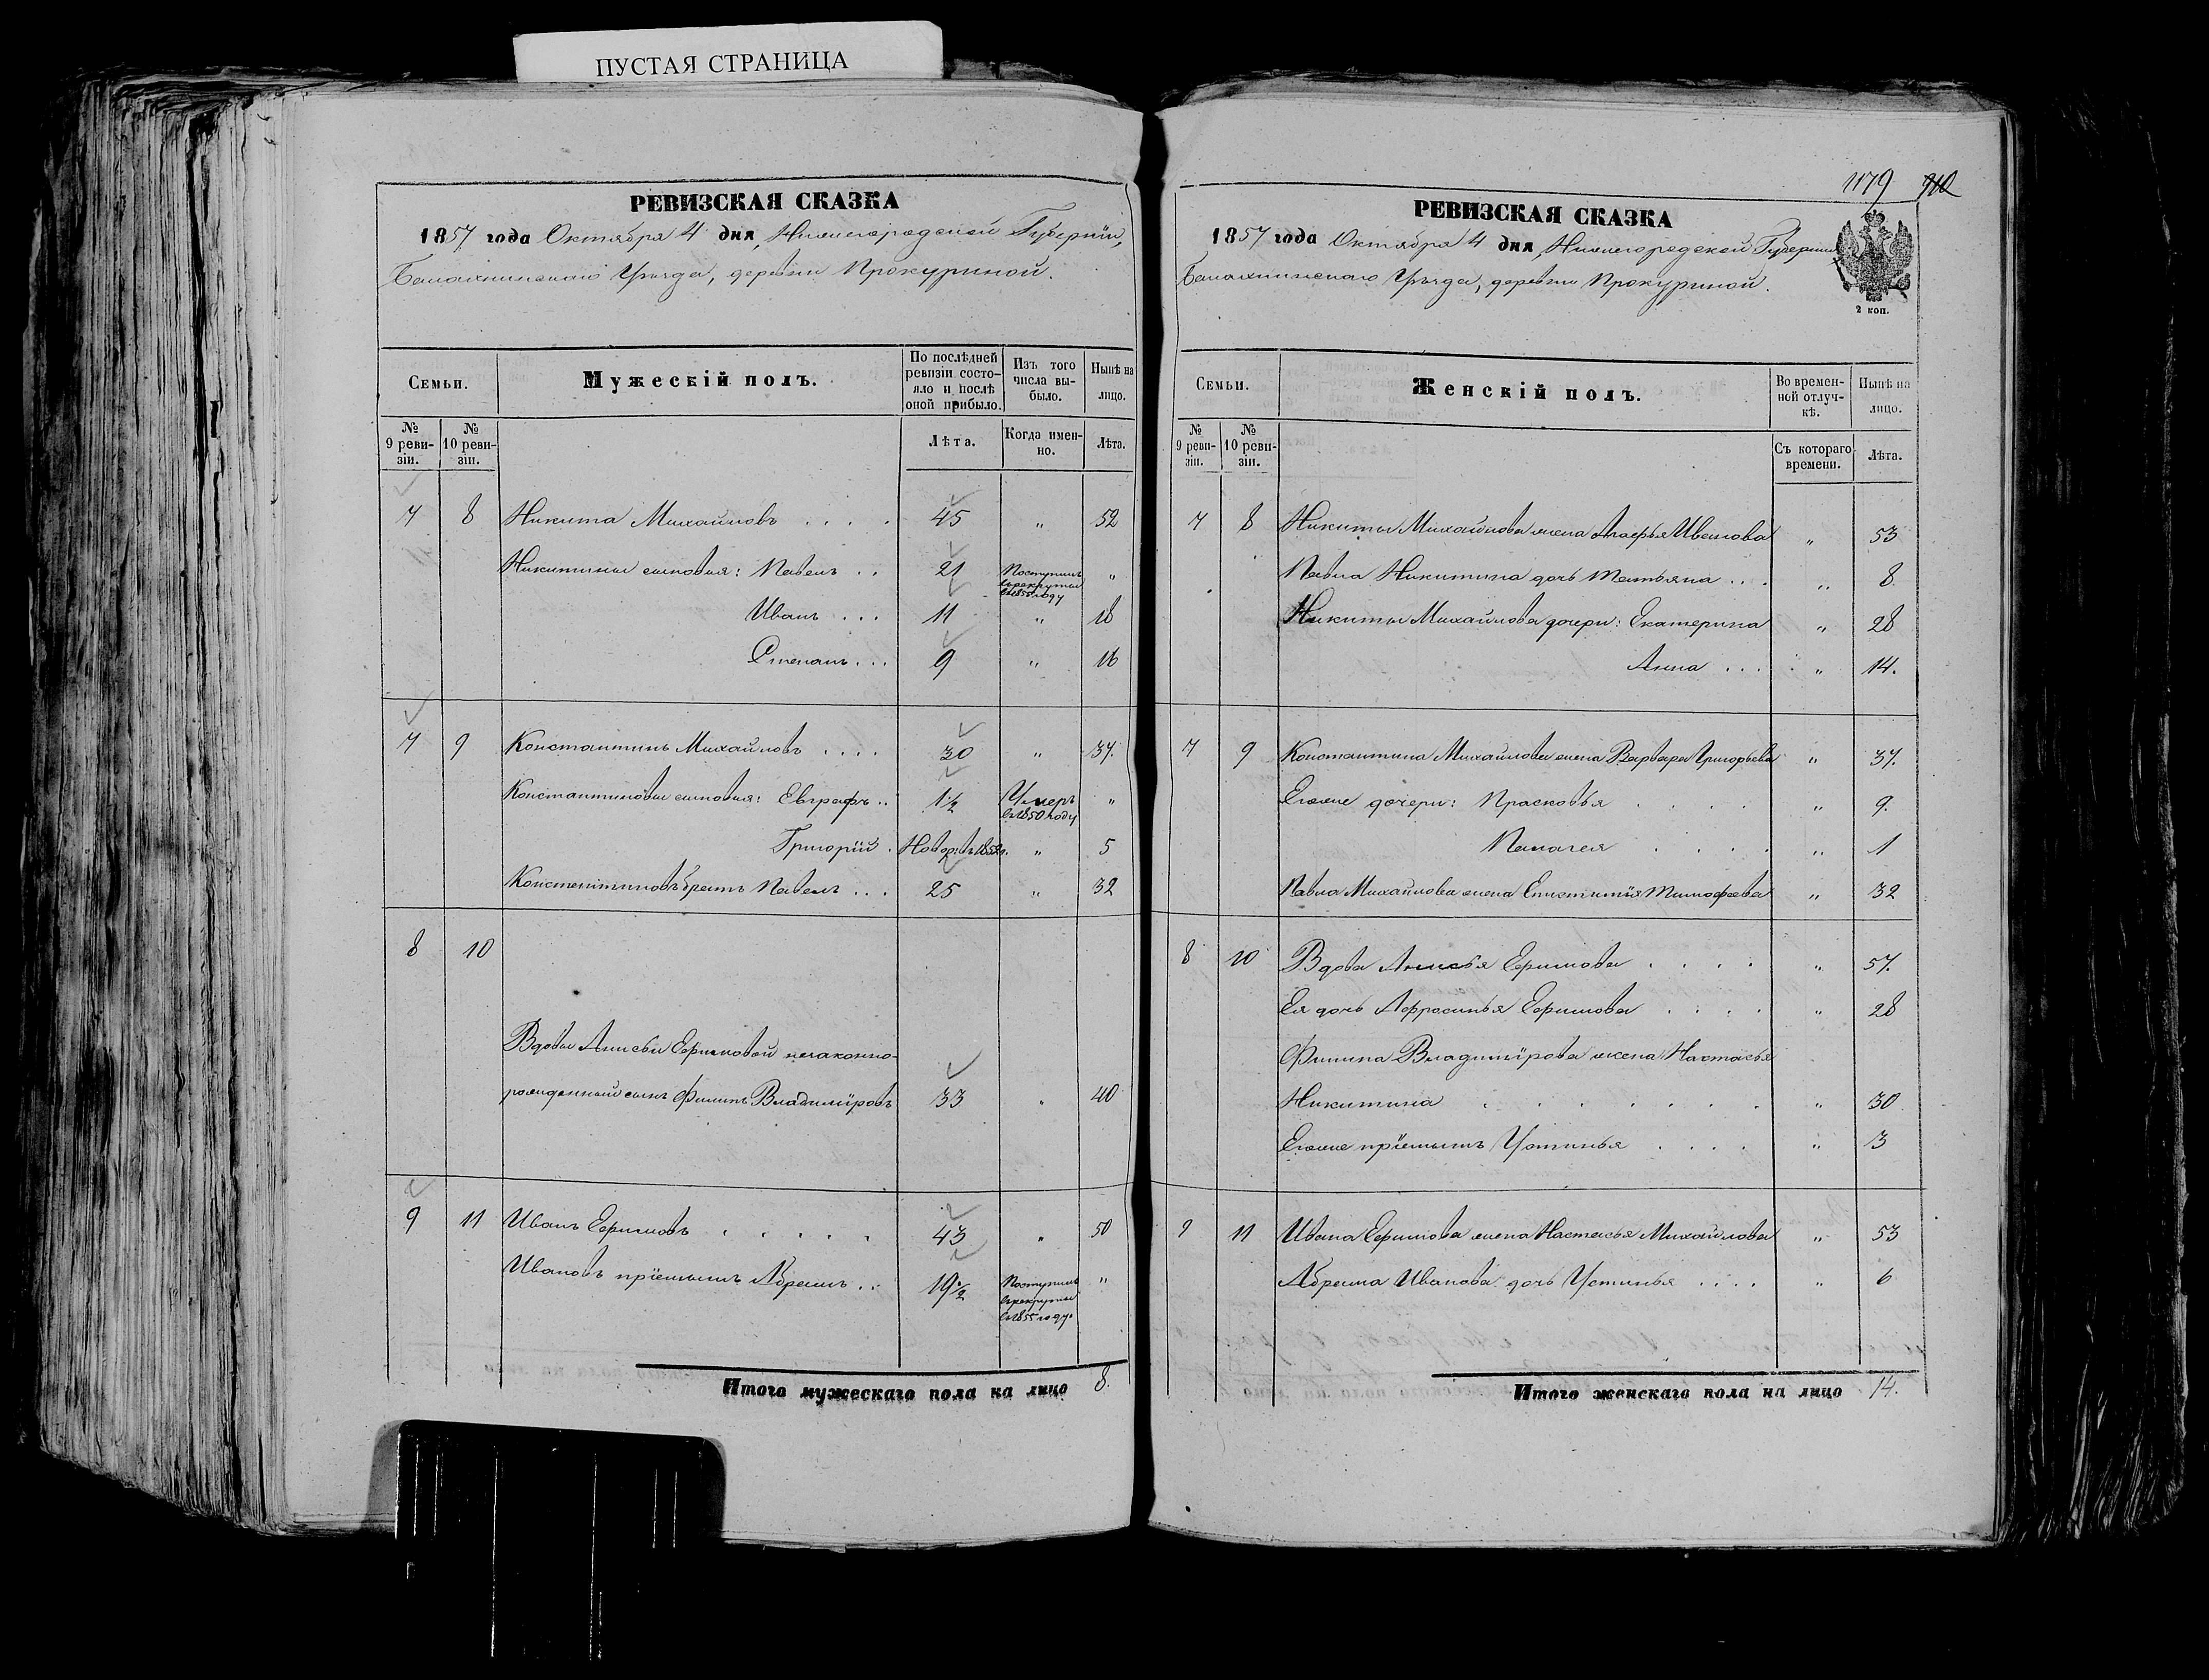 ПУСТАЯ СТРАНИЦА
РЕВИЗСКАЯ СКАЗКА
1857 года Октября 4 дня, Нижегородской Губернiи,
Балахнинскаго Уѣзда, деревни Прокуриной.
Семьи.
Мужескій полъ.
По послѣдней ревизіи состо-
яло и послѣ
оной прибыло.
Изъ того
числа вы-
было.
Нынѣ на
лицо.
№
9 реви-
зіи.
№
10 реви-
зіи.
Лѣта.
Когда имен-
но.
Лѣта.
7 8 Никита Михайловъ . . . . 45 „ 52
Никитины сыновья: Павелъ . . 21 Поступилъ „
въ рекруты
въ 1855 году
Иванъ . . . 11 „ 18
Степанъ . . . 9 „ 16
7 9 Константинъ Михайловъ . . . . 30 „ 37.
Константиновы сыновья: Евграфъ . . 1½ Умеръ „
въ 1850 году
Григорій . Новор: въ 1852 г. „ 5
Константиновъ братъ Павелъ . . . 25 „ 32
8 10
Вдовы Анисьи Ефимовой незаконно-
рожденный сынъ Филипъ Владиміровъ 33 „ 40
9 11 Иванъ Ефимовъ . . . . . 43 „ 50
Ивановъ пріемышъ Абрамъ . . 19½ Поступилъ „
въ рекруты
въ 1855 году.
Итого мужескаго пола на лицо 8.
1179 910
РЕВИЗСКАЯ СКАЗКА
1857 года Октября 4 дня, Нижегородской Губерніи
Балахнинскаго Уѣзда, деревни Прокуриной.
2 коп.
Семьи.
Женскій полъ.
Во времен-
ной отлуч-
кѣ.
Нынѣ на
лицо.
№
9 реви-
зіи.
№
10 реви-
зіи.
Съ котораго
времени.
Лѣта.
7 8 Никиты Михайлова жена Агафья Иванова „ 53
Павла Никитина дочь Татьяна . . . „ 8
Никиты Михайлова дочери: Екатерина „ 28
Анна . . . „ 14.
7 9 Константина Михайлова жена Варвара Григорьева „ 37.
Егоже дочери: Прасковья . . . . „ 9.
Палагея . . . . „ 1
Павла Михайлова жена Епистимія Тимофеева „ 32
8 10 Вдова Анисья Ефимова . . . . „ 57.
Ея дочь Афросинья Ефимова . . . . „ 28
Филипа Владимірова жена Настасья
Никитина . . . . . . . „ 30
Егоже пріемышъ Устинья . . . . „ 3
9 11 Ивана Ефимова жена Настасья Михайлова „ 53
Абрама Иванова дочь Устинья . . . . „ 6
Итого женскаго пола на лицо 14.